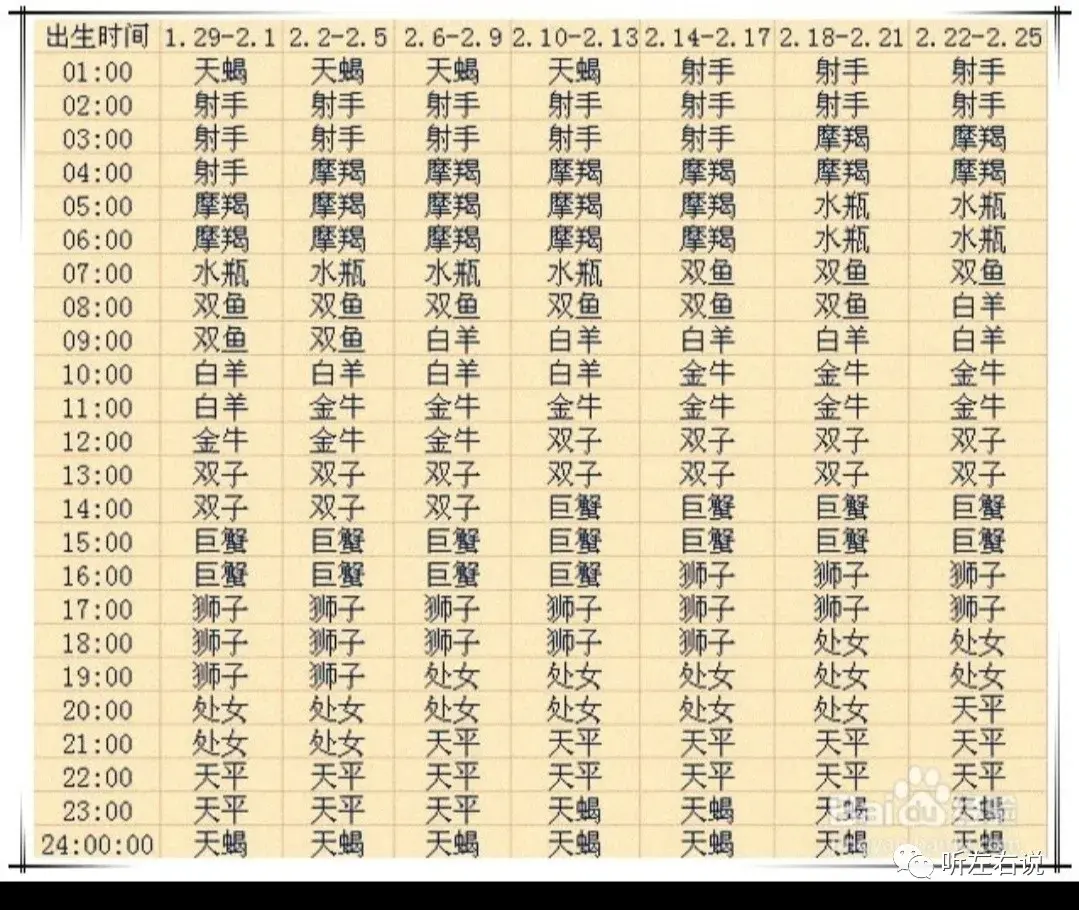 出生时间 1.29-2.1 2.2-2.5 2.6-2.9 2.10-2.13 2.14-2.17 2.18-2.21 2.22-2.25
01:00 天蝎 天蝎 天蝎 天蝎 射手 射手 射手
02:00 射手 射手 射手 射手 射手 射手 射手
03:00 射手 射手 射手 射手 射手 摩羯 摩羯
04:00 射手 摩羯 摩羯 摩羯 摩羯 摩羯 摩羯
05:00 摩羯 摩羯 摩羯 摩羯 摩羯 水瓶 水瓶
06:00 摩羯 摩羯 摩羯 摩羯 摩羯 水瓶 水瓶
07:00 水瓶 水瓶 水瓶 水瓶 双鱼 双鱼 双鱼
08:00 双鱼 双鱼 双鱼 双鱼 双鱼 双鱼 白羊
09:00 双鱼 双鱼 白羊 白羊 白羊 白羊 白羊
10:00 白羊 白羊 白羊 白羊 金牛 金牛 金牛
11:00 白羊 金牛 金牛 金牛 金牛 金牛 金牛
12:00 金牛 金牛 金牛 双子 双子 双子 双子
13:00 双子 双子 双子 双子 双子 双子 双子
14:00 双子 双子 双子 巨蟹 巨蟹 巨蟹 巨蟹
15:00 巨蟹 巨蟹 巨蟹 巨蟹 巨蟹 巨蟹 巨蟹
16:00 巨蟹 巨蟹 巨蟹 巨蟹 狮子 狮子 狮子
17:00 狮子 狮子 狮子 狮子 狮子 狮子 狮子
18:00 狮子 狮子 狮子 狮子 狮子 处女 处女
19:00 狮子 狮子 处女 处女 处女 处女 处女
20:00 处女 处女 处女 处女 处女 处女 天平
21:00 处女 处女 天平 天平 天平 天平 天平
22:00 天平 天平 天平 天平 天平 天平 天平
23:00 天平 天平 天平 天蝎 天蝎 天蝎 天蝎
24:00:00 天蝎 天蝎 天蝎 天蝎 天蝎 天蝎 天蝎
Baidu经验
听左右说